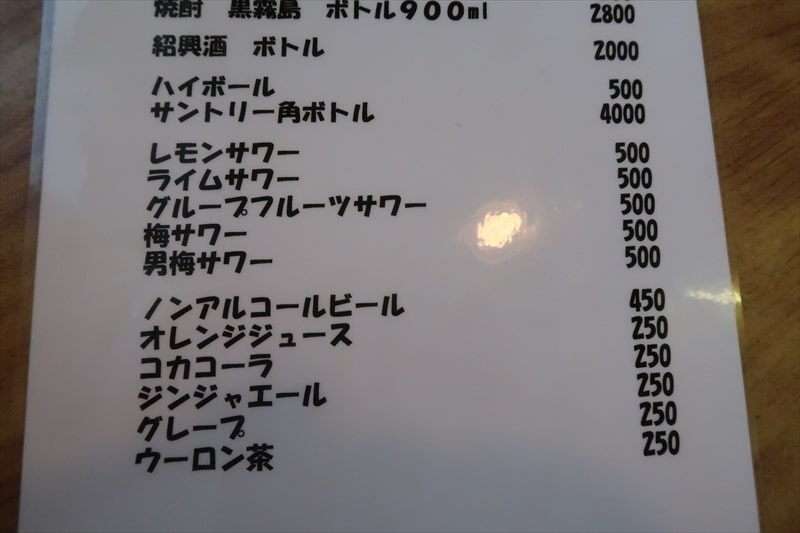 焼酎 黒霧島 ボトル900ml 2800
紹興酒 ボトル 2000
ハイボール 500
サントリー角ボトル 4000
レモンサワー 500
ライムサワー 500
グループフルーツサワー 500
梅サワー 500
男梅サワー 500
ノンアルコールビール 450
オレンジジュース 250
コカコーラ 250
ジンジャエール 250
グレープ 250
ウーロン茶 250